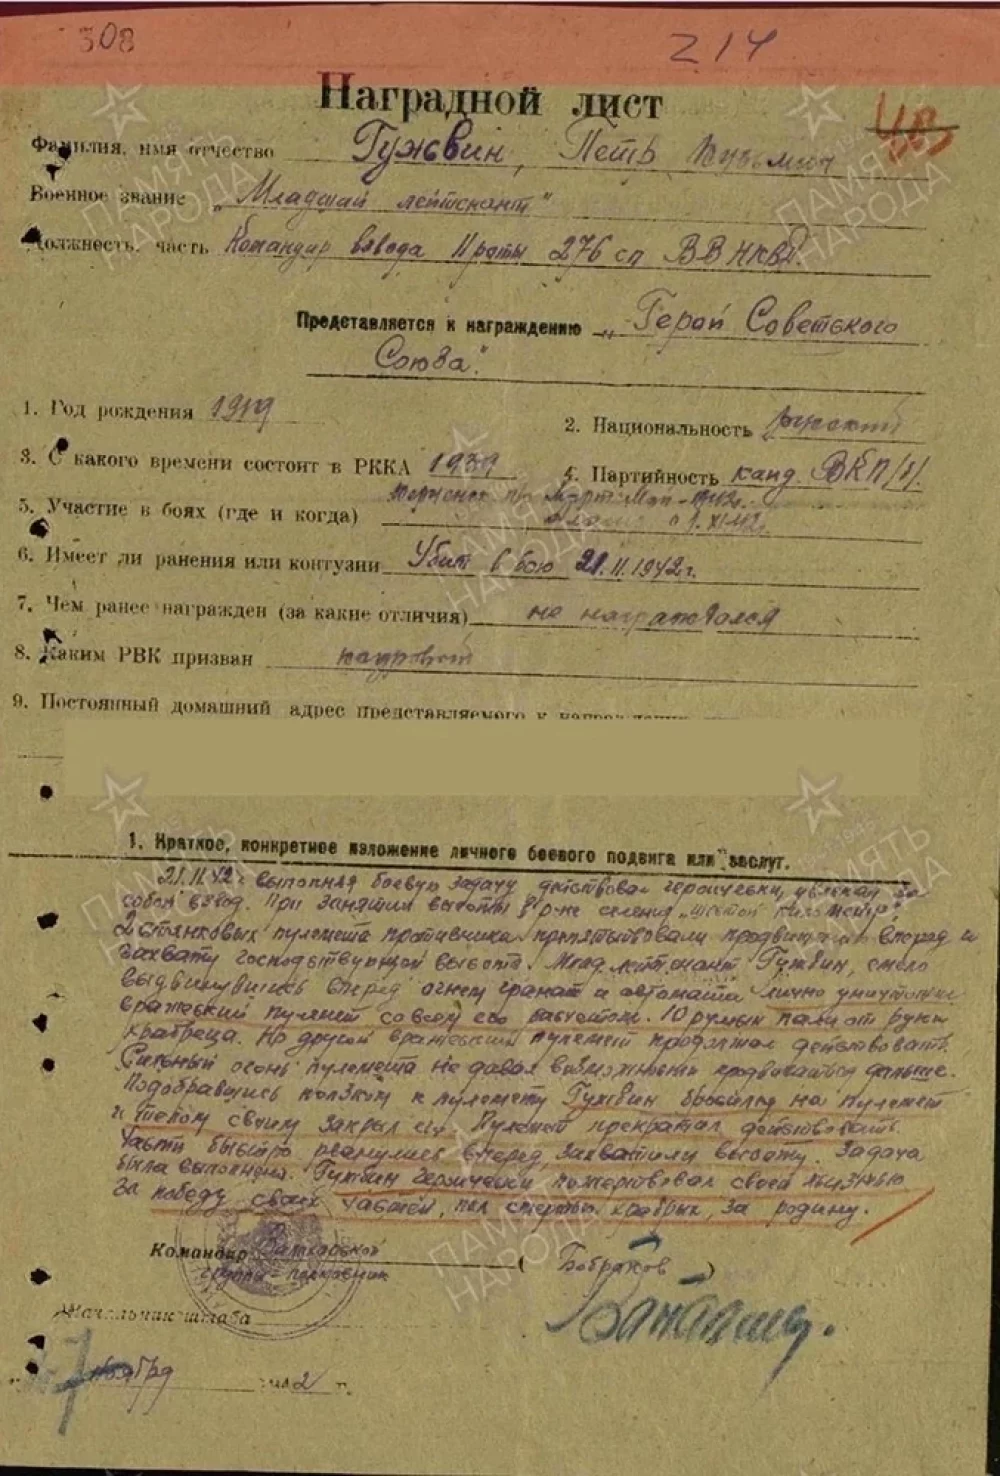 308
214
Наградной лист
Фамилия, имя отчество Гужвин, Пётр Кузьмич
Военное звание „Младший лейтенант"
Должность, часть Командир взвода II роты 276 сп ВВ НКВД.
Представляется к награждению „Герой Советского
Союза".
1. Год рождения 1919
2. Национальность русский
3. С какого времени состоит в РККА 1939
4. Партийность канд. ВКП/б/.
5. Участие в боях (где и когда)
6. Имеет ли ранения или контузии Убит в бою 21.11.1942г.
7. Чем ранее награжден (за какие отличия) не награждался
8. Каким РВК призван
9. Постоянный домашний адрес представляемого к награждению
1. Краткое, конкретное изложение личного боевого подвига или заслуг.
21.11.42г выполняя боевую задачу действовал героически, увлекая за
собой взвод. При занятии высоты в р-не селения „Шестой километр"
2 станковых пулемета противника препятствовали продвижению вперед и
захвату господствующей высоты. Млад. лейтенант Гужвин, смело
выдвинувшись вперед огнем гранат и автомата лично уничтожил
вражеский пулемет со всем его расчетом. 10 румын пали от руки
храбреца. Но другой вражеский пулемет продолжал действовать.
Сильный огонь пулемета не давал возможности продвигаться дальше.
Подобравшись ползком к пулемету Гужвин бросился на пулемет
и телом своим закрыл его. Пулемет прекратил действовать.
Части быстро рванулись вперед, захватили высоту. Задача
была выполнена. Гужвин героически пожертвовал своей жизнью
за победу своих частей, пал смертью храбрых, за родину.
Командир
группы - полковник
( Бобраков )
Начальник штаба
2 г.
ПАМЯТЬ
НАРОДА